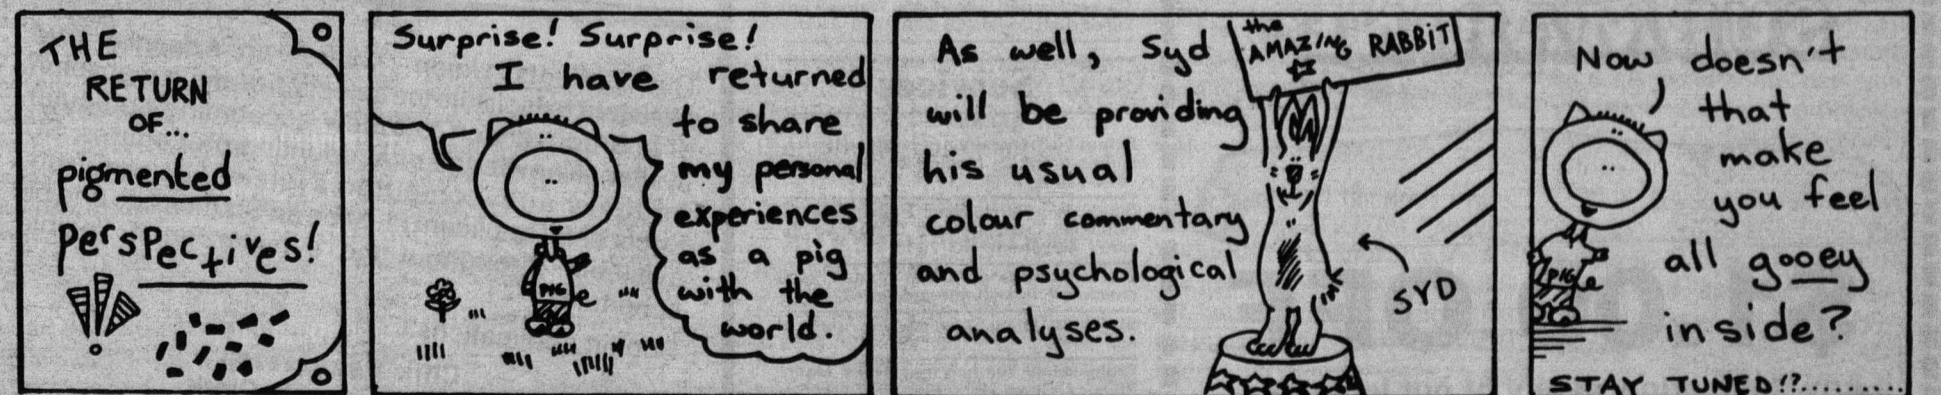 THE
RETURN
OF...
pigmented
perspectives!
Surprise! Surprise!
I have returned
to share
my personal
experiences
as a pig
with the
world.
PIG
As well, Syd
will be providing
his usual
colour commentary
and psychological
analyses.
the
AMAZING RABBIT
SYD
Now doesn't
that
make
you feel
all gooey
inside?
PIG
STAY TUNED!?.........